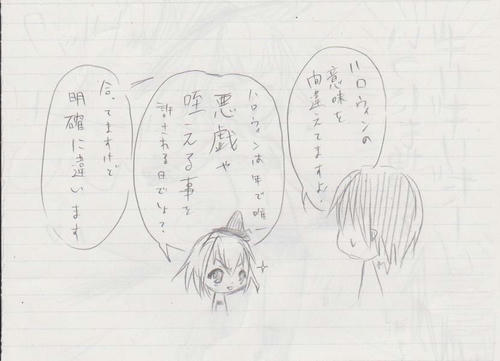 ハロウィンの
意味を
間違えてますよ!
ハロウィンは年で唯一
悪戯や
咥える事を
許される日でしょ?
合ってますけど
明確に違います